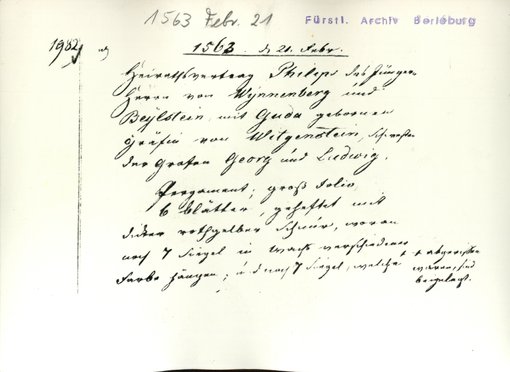 1563 Febr. 21
Fürstl. Archiv Berleburg
1982
1563. d. 21. Febr.
Heirathsvertrag Philips des Jünger
Herrn von Wynnenberg und
Beylstein, mit Guda gebornen
Gräfin von Witgenstein, Schwester
der Grafen Georg und Ludwig.
Pergament, groß Folio,
6 Blätter, geheftet mit
dicker rothgelber Schnur, woran
noch 7 Siegel in Wachs verschiedener
Farbe hängen; und noch 7 Siegel, welche +
+ abgerissen
waren, sind
beigelegt.